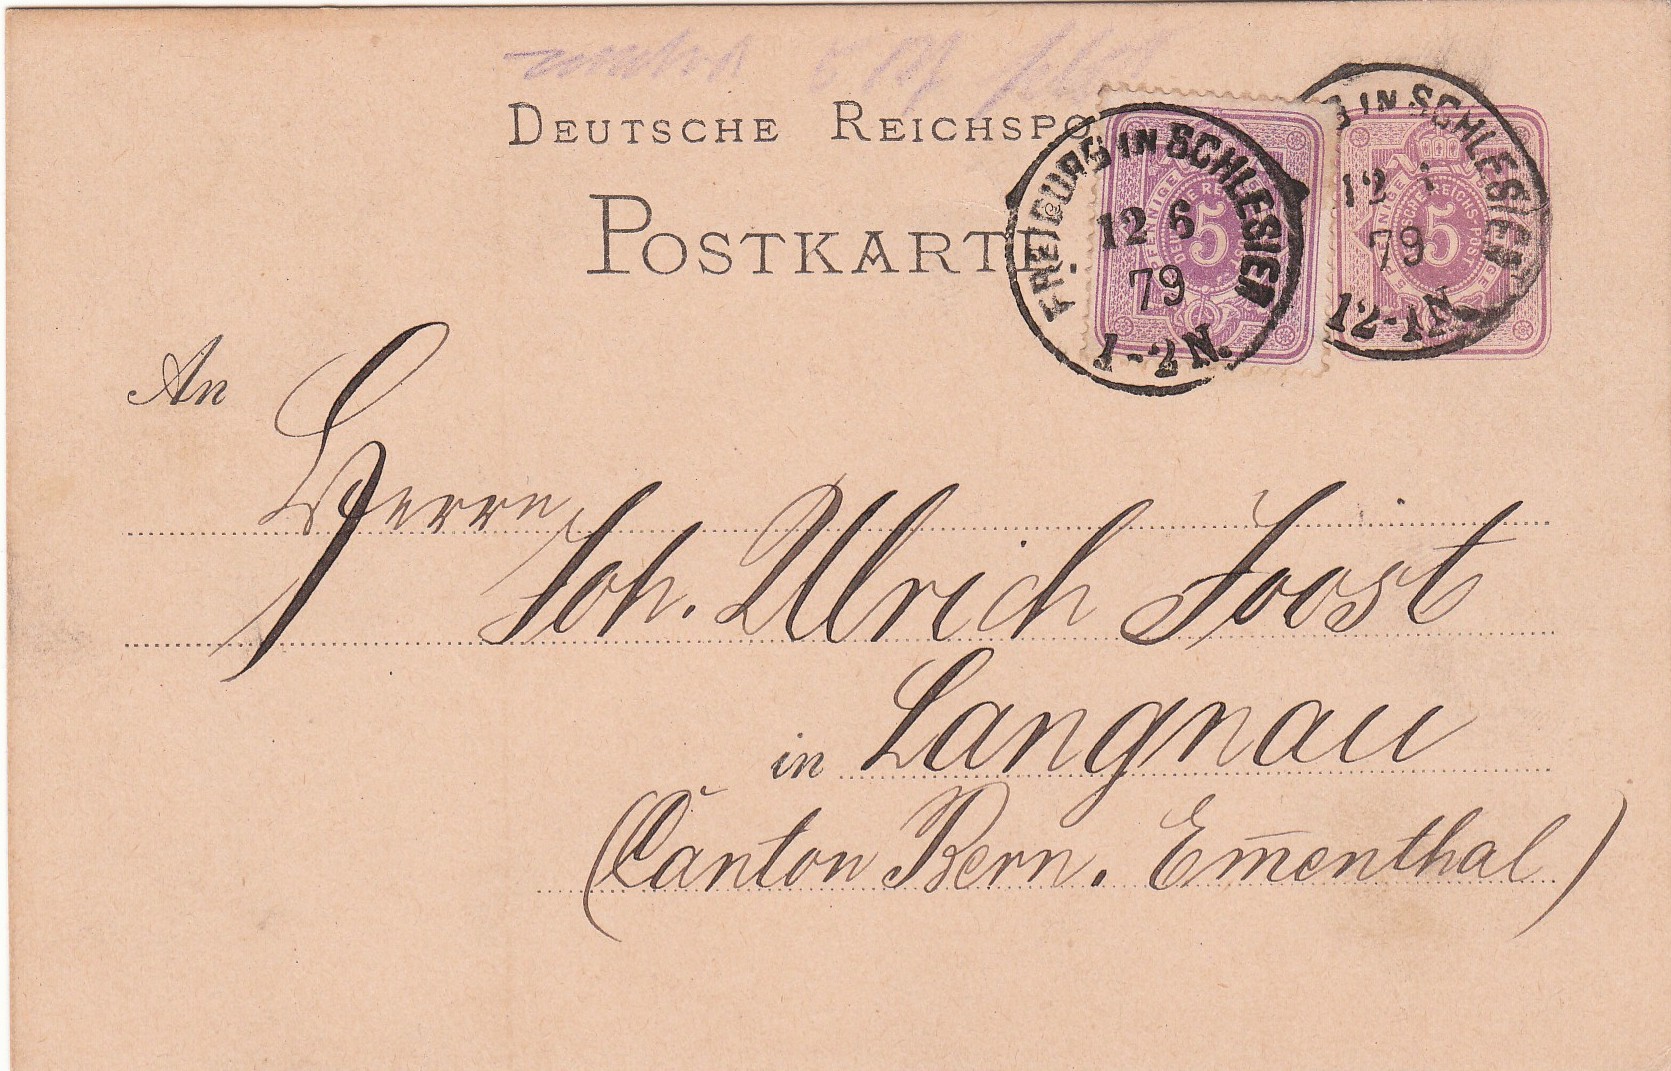 DEUTSCHE REICHSPO
POSTKARTE
FREIBURG IN SCHLESIEN
12 6
79
1-2N.
5
G IN SCHLESIEN
12
79
12-1N.
5
PFENNIGE
DEUTSCHE REICHS-POST
An
Herrn
Joh. Ulrich Joost
in Langnau
(Canton Bern. Em̄enthal)